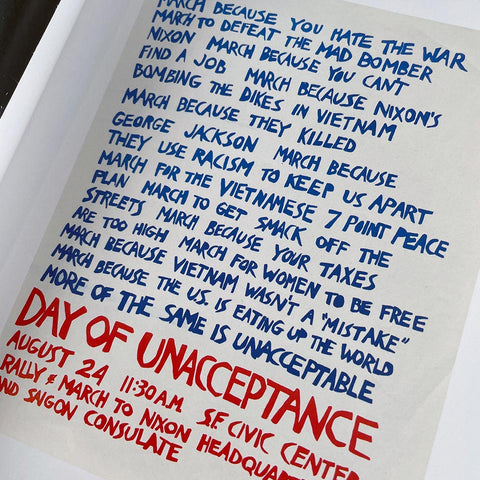 MARCH BECAUSE YOU HATE THE WAR
MARCH TO DEFEAT THE MAD BOMBER
NIXON MARCH BECAUSE YOU CAN'T
FIND A JOB MARCH BECAUSE NIXON'S
BOMBING THE DIKES IN VIETNAM
MARCH BECAUSE THEY KILLED
GEORGE JACKSON MARCH BECAUSE
THEY USE RACISM TO KEEP US APART
MARCH FOR THE VIETNAMESE 7 POINT PEACE
PLAN MARCH TO GET SMACK OFF THE
STREETS MARCH BECAUSE YOUR TAXES
ARE TOO HIGH MARCH FOR WOMEN TO BE FREE
MARCH BECAUSE VIETNAM WASN'T A "MISTAKE"
MARCH BECAUSE THE U.S. IS EATING UP THE WORLD
MORE OF THE SAME IS UNACCEPTABLE
DAY OF UNACCEPTANCE
AUGUST 24 11:30 A.M. S.F. CIVIC CENTER
RALLY & MARCH TO NIXON HEADQUART
AND SAIGON CONSULATE